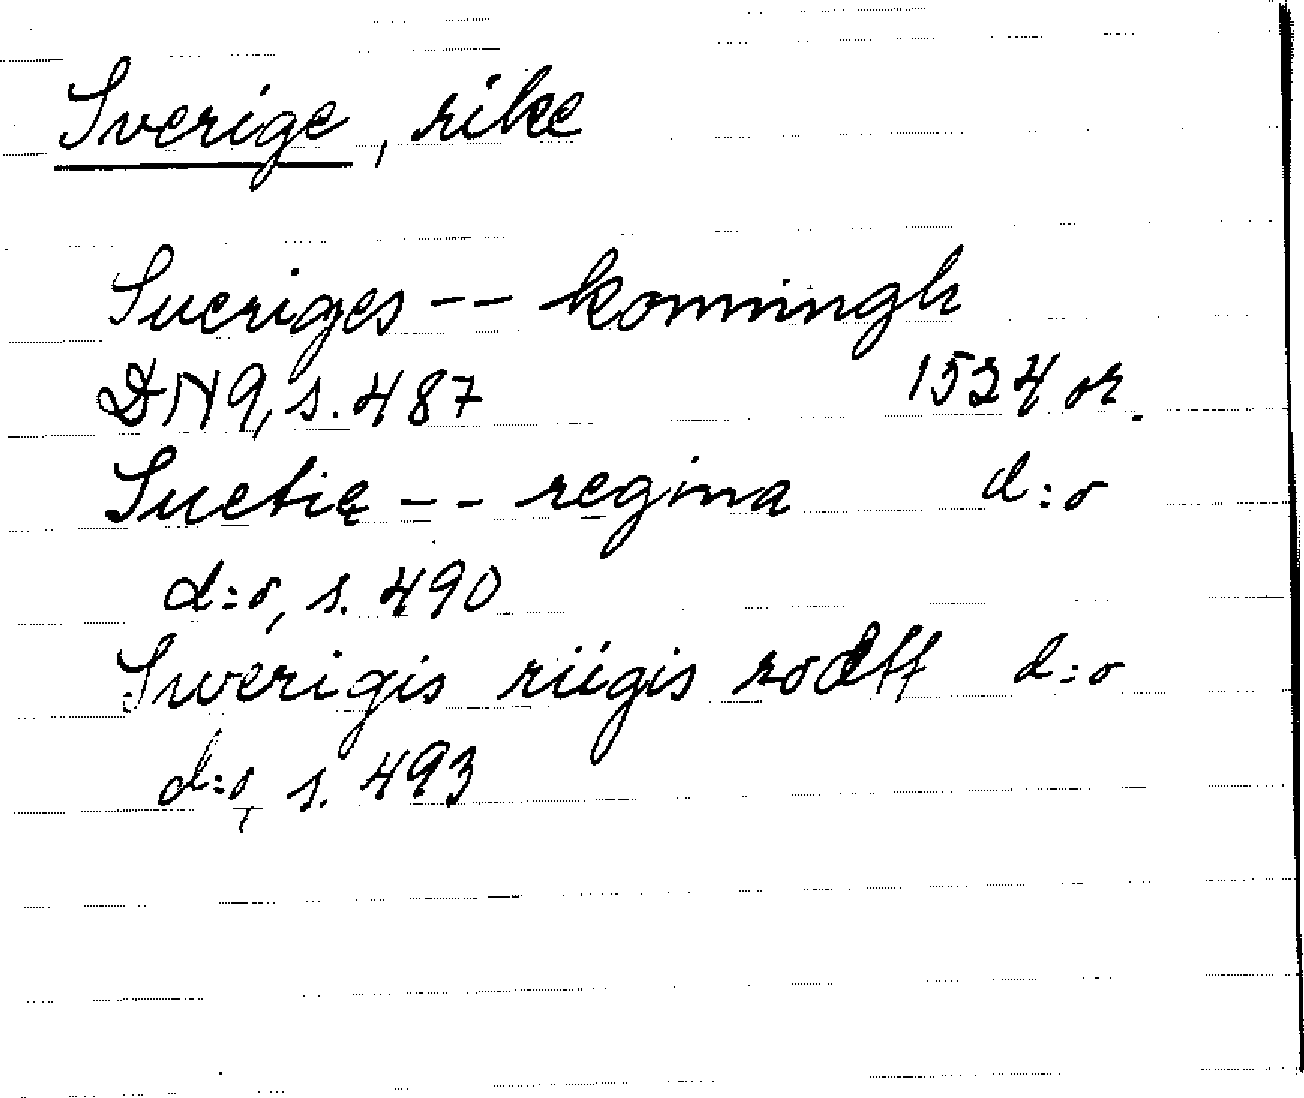 Sverige, rike
Sueriges -- konningh
DN9, s. 487 1524 or.
Suetię -- regina d:o
d:o, s. 490
Swerigis riigis rodh d:o
d:o, s. 493